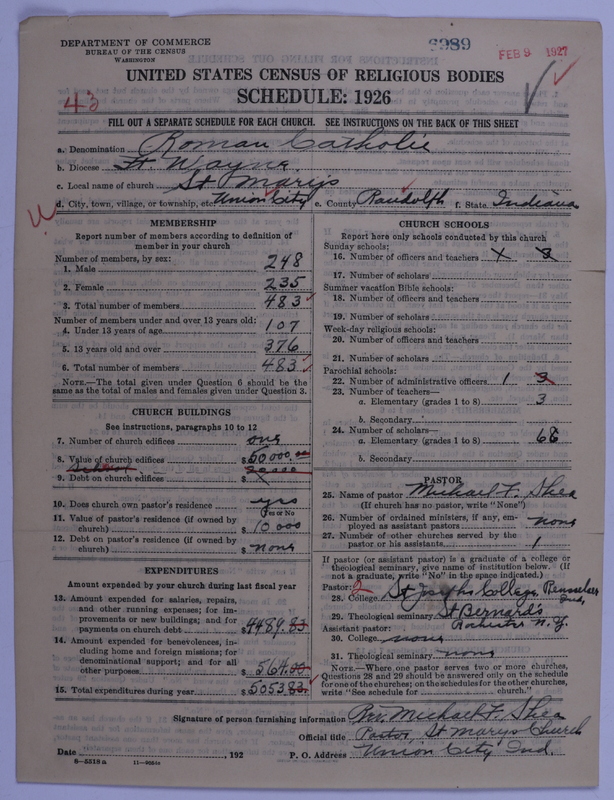 DEPARTMENT OF COMMERCE
BUREAU OF THE CENSUS
WASHINGTON
6989
FEB 9 1927
UNITED STATES CENSUS OF RELIGIOUS BODIES
SCHEDULE: 1926
43
FILL OUT A SEPARATE SCHEDULE FOR EACH CHURCH. SEE INSTRUCTIONS ON THE BACK OF THIS SHEET
a. Denomination Roman Catholic
b. Diocese Ft. Wayne
c. Local name of church St Marys
d. City, town, village, or township, etc. Union City e. County Randolph f. State Indiana
MEMBERSHIP
Report number of members according to definition of
member in your church
Number of members, by sex:
1. Male 248
2. Female 235
3. Total number of members 483
Number of members under and over 13 years old:
4. Under 13 years of age 107
5. 13 years old and over 376
6. Total number of members 483
NOTE.—The total given under Question 6 should be
same as the total of males and females given under Question 3.
CHURCH BUILDINGS
See instructions, paragraphs 10 to 12
7. Number of church edifices one
8. Value of church edifices $50000.00
School
9. Debt on church edifices $ x
10. Does church own pastor's residence yes
Yes or No
11. Value of pastor's residence (if owned by
church) $10000
12. Debt on pastor's residence (if owned by
church) $ none
EXPENDITURES
Amount expended by your church during last fiscal year
13. Amount expended for salaries, repairs,
and other running expenses; for im-
provements or new buildings; and for
payments on church debt $4489.83
14. Amount expended for benevolences, in-
cluding home and foreign missions; for
denominational support; and for all
other purposes 564.00
15. Total expenditures during year $5053.83
CHURCH SCHOOLS
Report here only schools conducted by this church
Sunday schools:
16. Number of officers and teachers x 3
17. Number of scholars
Summer vacation Bible schools:
18. Number of officers and teachers
19. Number of scholars
Week-day religious schools:
20. Number of officers and teachers
21. Number of scholars
Parochial schools:
22. Number of administrative officers 1 3
23. Number of teachers—
a. Elementary (grades 1 to 8) 3
b. Secondary
24. Number of scholars—
a. Elementary (grades 1 to 8) 68
b. Secondary
PASTOR
25. Name of pastor Michael F. Shea
(If church has no pastor, write "None")
26. Number of ordained ministers, if any, em-
ployed as assistant pastors none
27. Number of other churches served by the
pastor or his assistants 1
If pastor (or assistant pastor) is a graduate of a college or
theological seminary, give name of institution below. (If
not a graduate, write "No" in the space indicated.)
Pastor: 2
28. College St Josephs College, Rensselaer Ind,
29. Theological seminary St Bernard's Rochester N.Y.
Assistant pastor:
30. College none
31. Theological seminary none
NOTE.—Where one pastor serves two or more churches,
Questions 28 and 29 should be answered only on the schedule
for one of the churches; on the schedules for the other churches,
write "See schedule for church."
Signature of person furnishing information Rev. Michael F. Shea
Official title Pastor, St Marys Church
Date , 192 P. O. Address Union City Ind.
8—5518a